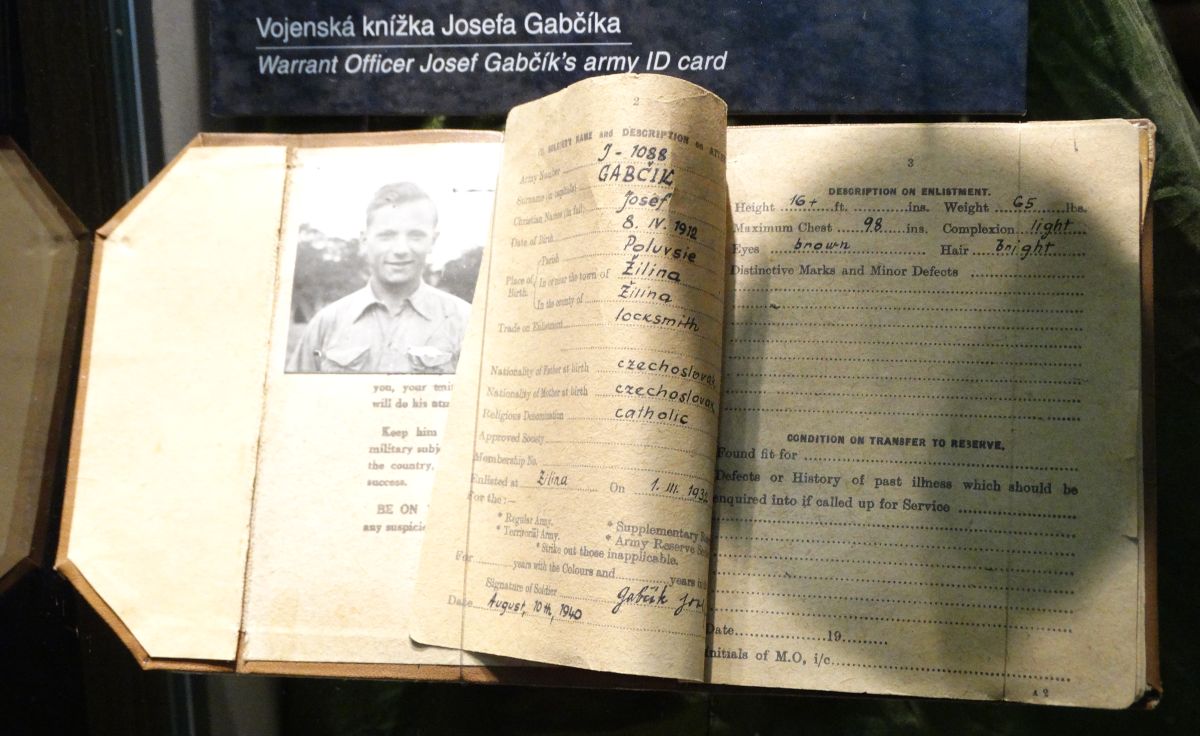 Vojenská knížka Josefa Gabčíka
Warrant Officer Josef Gabčík's army ID card
you, your
will do his
Keep him
military
the country,
success.
BE ON
any
2
SOLDIER'S NAME and DESCRIPTION on
Army Number J-1088
Surname (in capitals) GABČIK
Christian Names (in full) Josef
Date of Birth 8. IV. 1912
Place of Birth.
Parish Poluvsie
In or near the town of Žilina
In the county of Žilina
Trade on Enlistment locksmith
Nationality of Father at birth czechoslovak
Nationality of Mother at birth czechoslovak
Religious Denomination catholic
Approved Society
Membership No.
Enlisted at Žilina On 1. III. 193
For the :—
* Regular Army. * Supplementary
* Territorial Army. * Army Reserve
* Strike out those inapplicable.
For years with the Colours and years in
Signature of Soldier Gabčík
Date August, 10th, 1940
3
1
DESCRIPTION ON ENLISTMENT.
Height 16+ ft. ins. Weight 65 lbs.
Maximum Chest 98 ins. Complexion light
Eyes brown Hair bright
Distinctive Marks and Minor Defects
CONDITION ON TRANSFER TO RESERVE.
Found fit for
Defects or History of past illness which should be
enquired into if called up for Service
Date 19
Initials of M.O, i/c
A 2